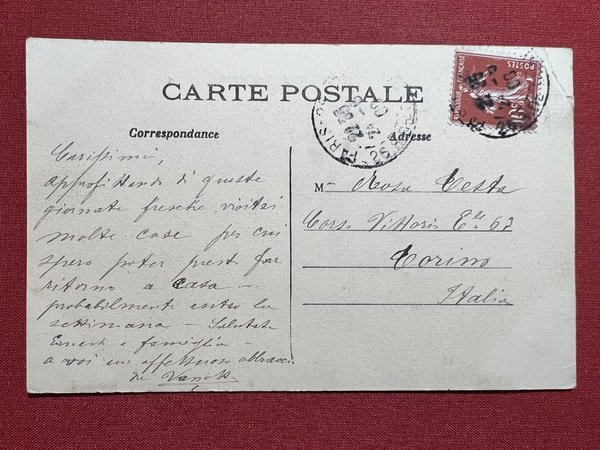 CARTE POSTALE
Correspondance
Adresse
Carissimi,
approfittando di queste
giornate fresche visitai
molte case per cui
spero poter prest far
ritorno a casa -
probabilmente entro la
settimana - Salutate
e famiglia -
a voi un affettuoso abbracci
da
M Rosa Testa
Corso Vittorio E 67
Torino
Italia
POSTES
PARIS